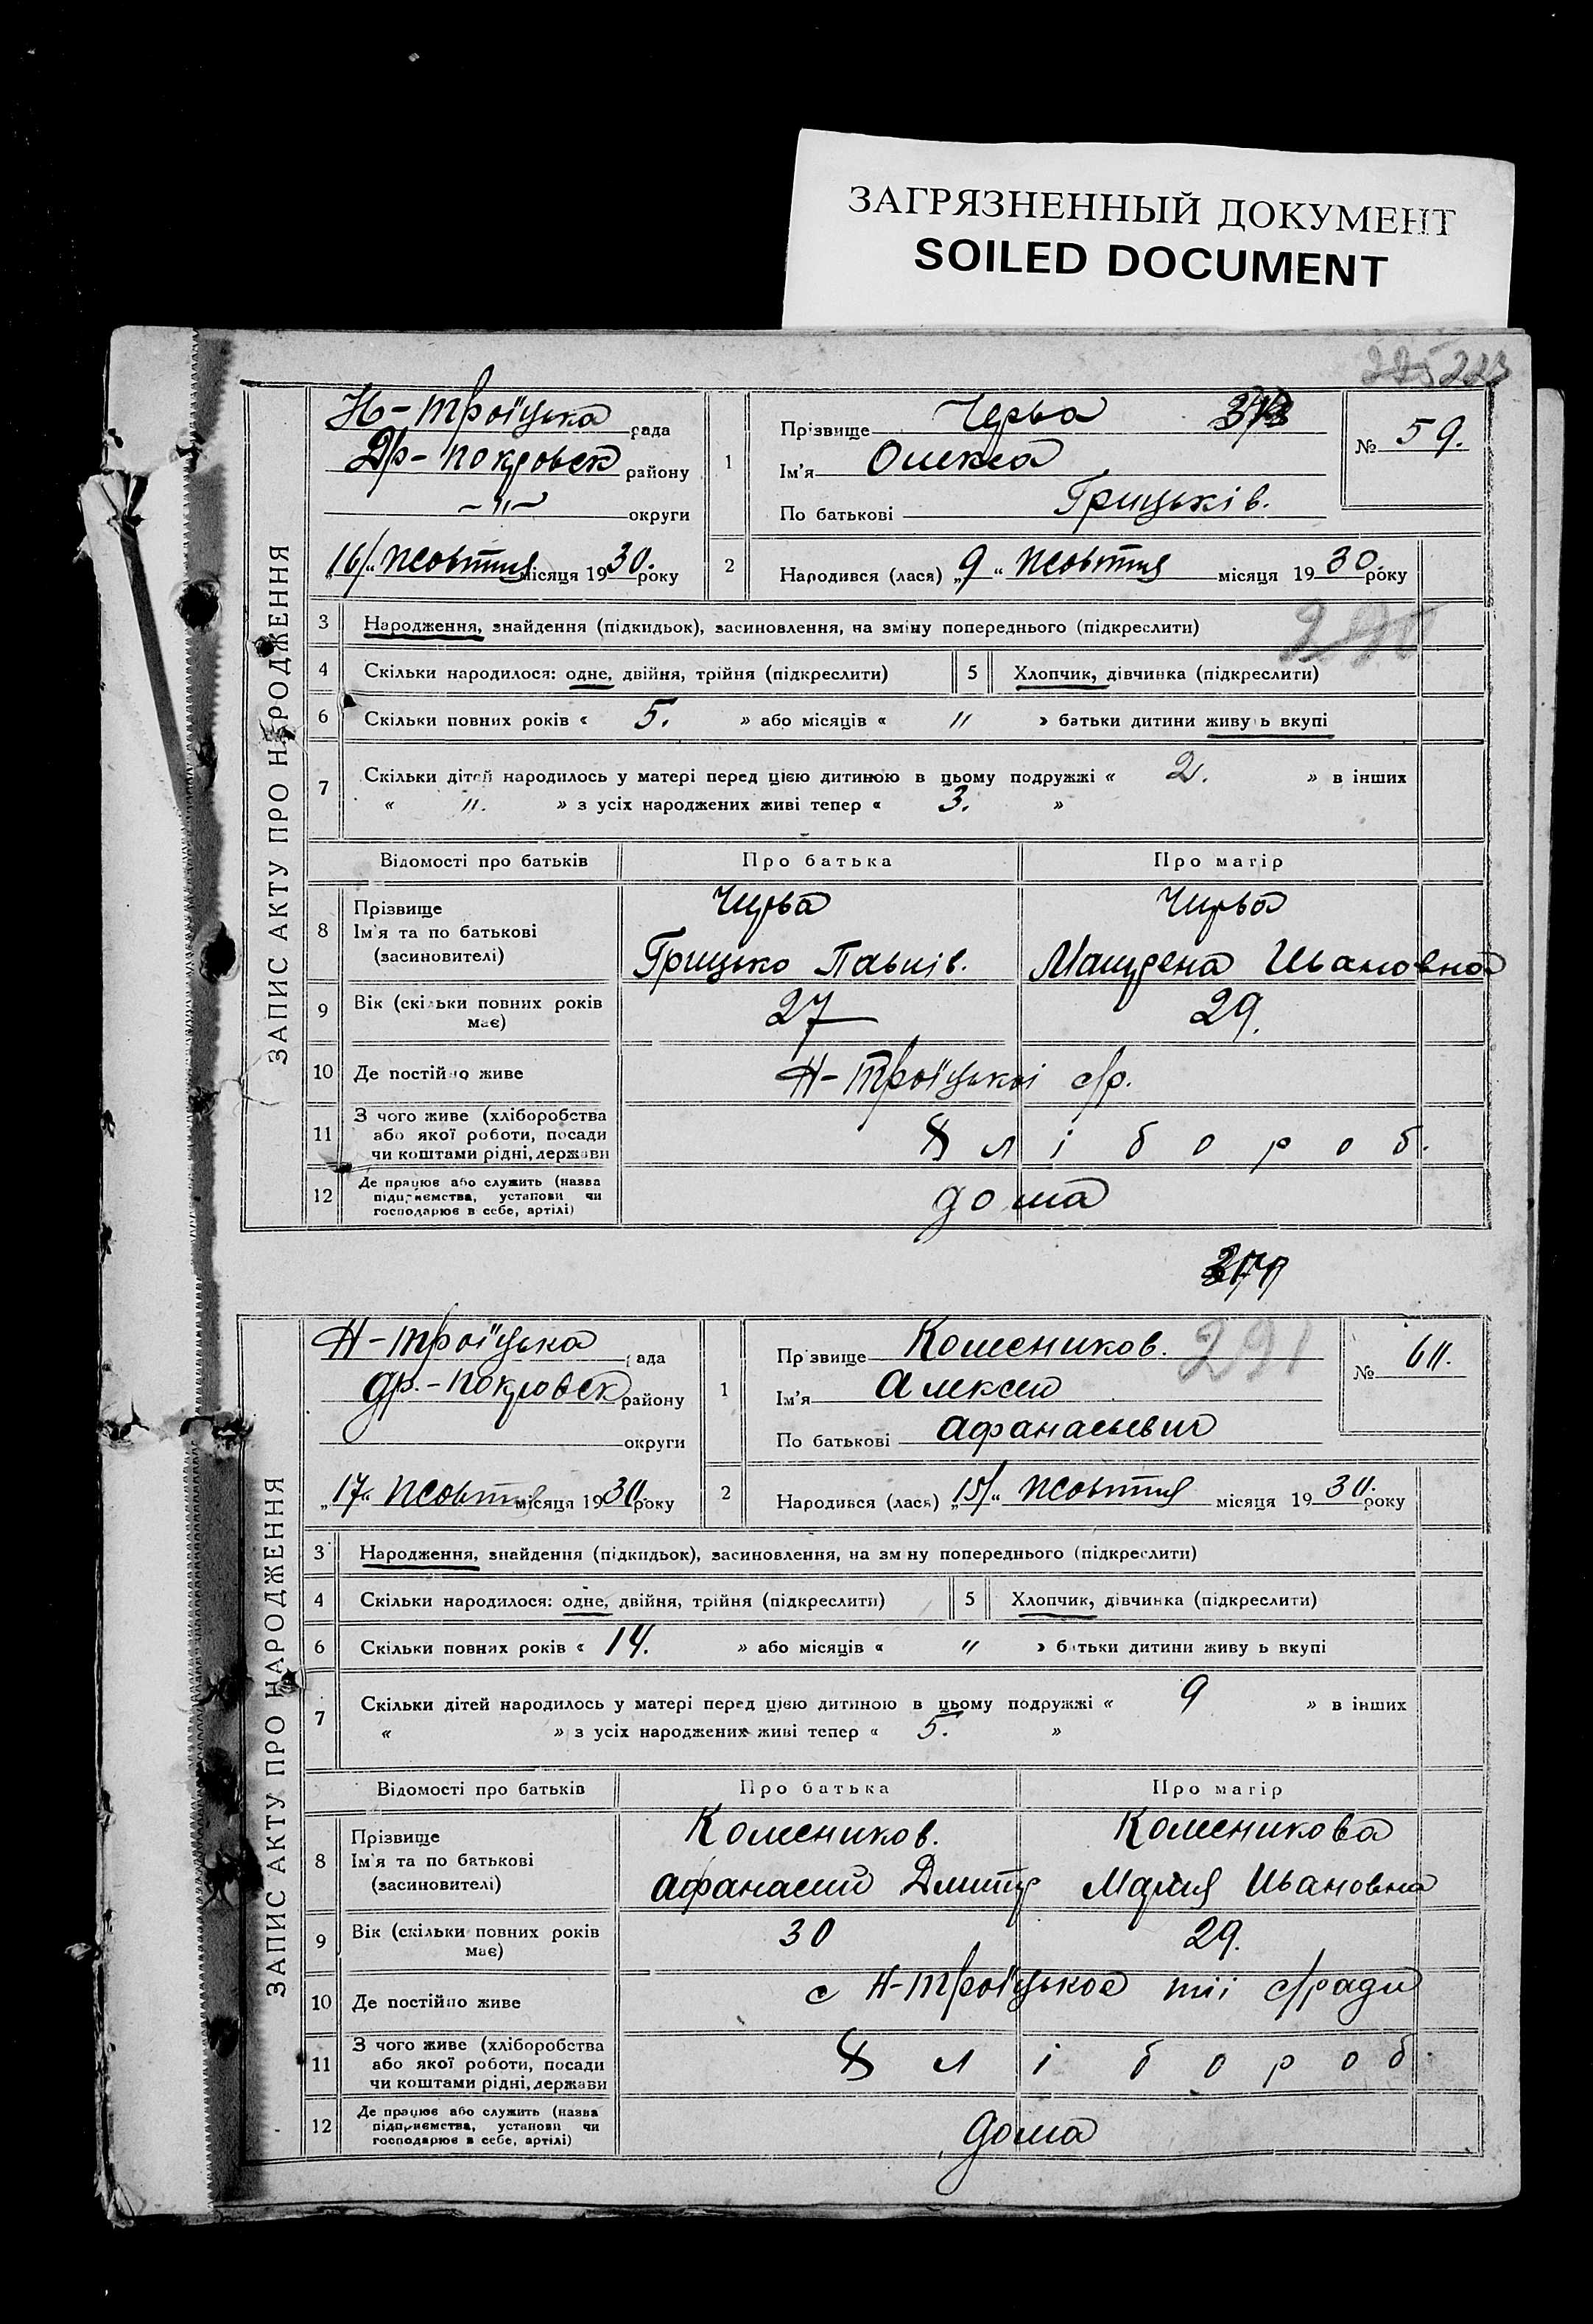 ЗАГРЯЗНЕННЫЙ ДОКУМЕНТ
SOILED DOCUMENT
225 223
ЗАПИС АКТУ ПРО НАРОДЖЕННЯ
Н-Троїцька рада
Др-покровськ району
-"- округи
"16" жовтня місяця 1930 року
1
Прізвище Чурва
Ім'я Олекса
По батькові Грицьків.
№ 59.
2 Народився (лася) "9" жовтня місяця 1930 року
3 Народження, знайдення (підкидьок), засиновлення, на зміну попереднього (підкреслити)
290
4 Скільки народилося: одне, двійня, трійня (підкреслити) 5 Хлопчик, дівчинка (підкреслити)
6 Скільки повних років « 5. » або місяців « " » батьки дитини живуть вкупі
7 Скільки дітей народилось у матері перед цією дитиною в цьому подружжі « 2. » в інших
« ". » з усіх народжених живі тепер « 3. »
Відомості про батьків Про батька Про матір
8 Прізвище Чурва Чурва
Ім'я та по батькові
(засиновителі) Грицько Павлів. Мацрена Ивановна
9 Вік (скільки повних років має) 27 29.
10 Де постійно живе Н-Троїцької с/р.
11 З чого живе (хліборобства
або якої роботи, посади
чи коштами рідні, держави Хлібороб.
12 Де працює або служить (назва
підприємства, установи чи
господарює в себе, артілі) дома
ЗАПИС АКТУ ПРО НАРОДЖЕННЯ
Н-Троїцька рада
др.-покровськ району
округи
"17" жовтня місяця 1930 року
1
Прізвище Колесников. 291
Ім'я Алексей
По батькові Афанасьевич
№ 60.
2 Народився (лася) "15" жовтня місяця 1930. року
3 Народження, знайдення (підкидьок), засиновлення, на зміну попереднього (підкреслити)
4 Скільки народилося: одне, двійня, трійня (підкреслити) 5 Хлопчик, дівчинка (підкреслити)
6 Скільки повних років « 14. » або місяців « " » батьки дитини живуть вкупі
7 Скільки дітей народилось у матері перед цією дитиною в цьому подружжі « 9 » в інших
« » з усіх народжених живі тепер « 5. »
Відомості про батьків Про батька Про матір
8 Прізвище Колесников. Колесникова
Ім'я та по батькові
(засиновителі) Афанасий Дмитр Мария Ивановна
9 Вік (скільки повних років має) 30 29.
10 Де постійно живе с Н-Троїцькое тії с/ради
11 З чого живе (хліборобства
або якої роботи, посади
чи коштами рідні, держави Хлібороб.
12 Де працює або служить (назва
підприємства, установи чи
господарює в себе, артілі) дома